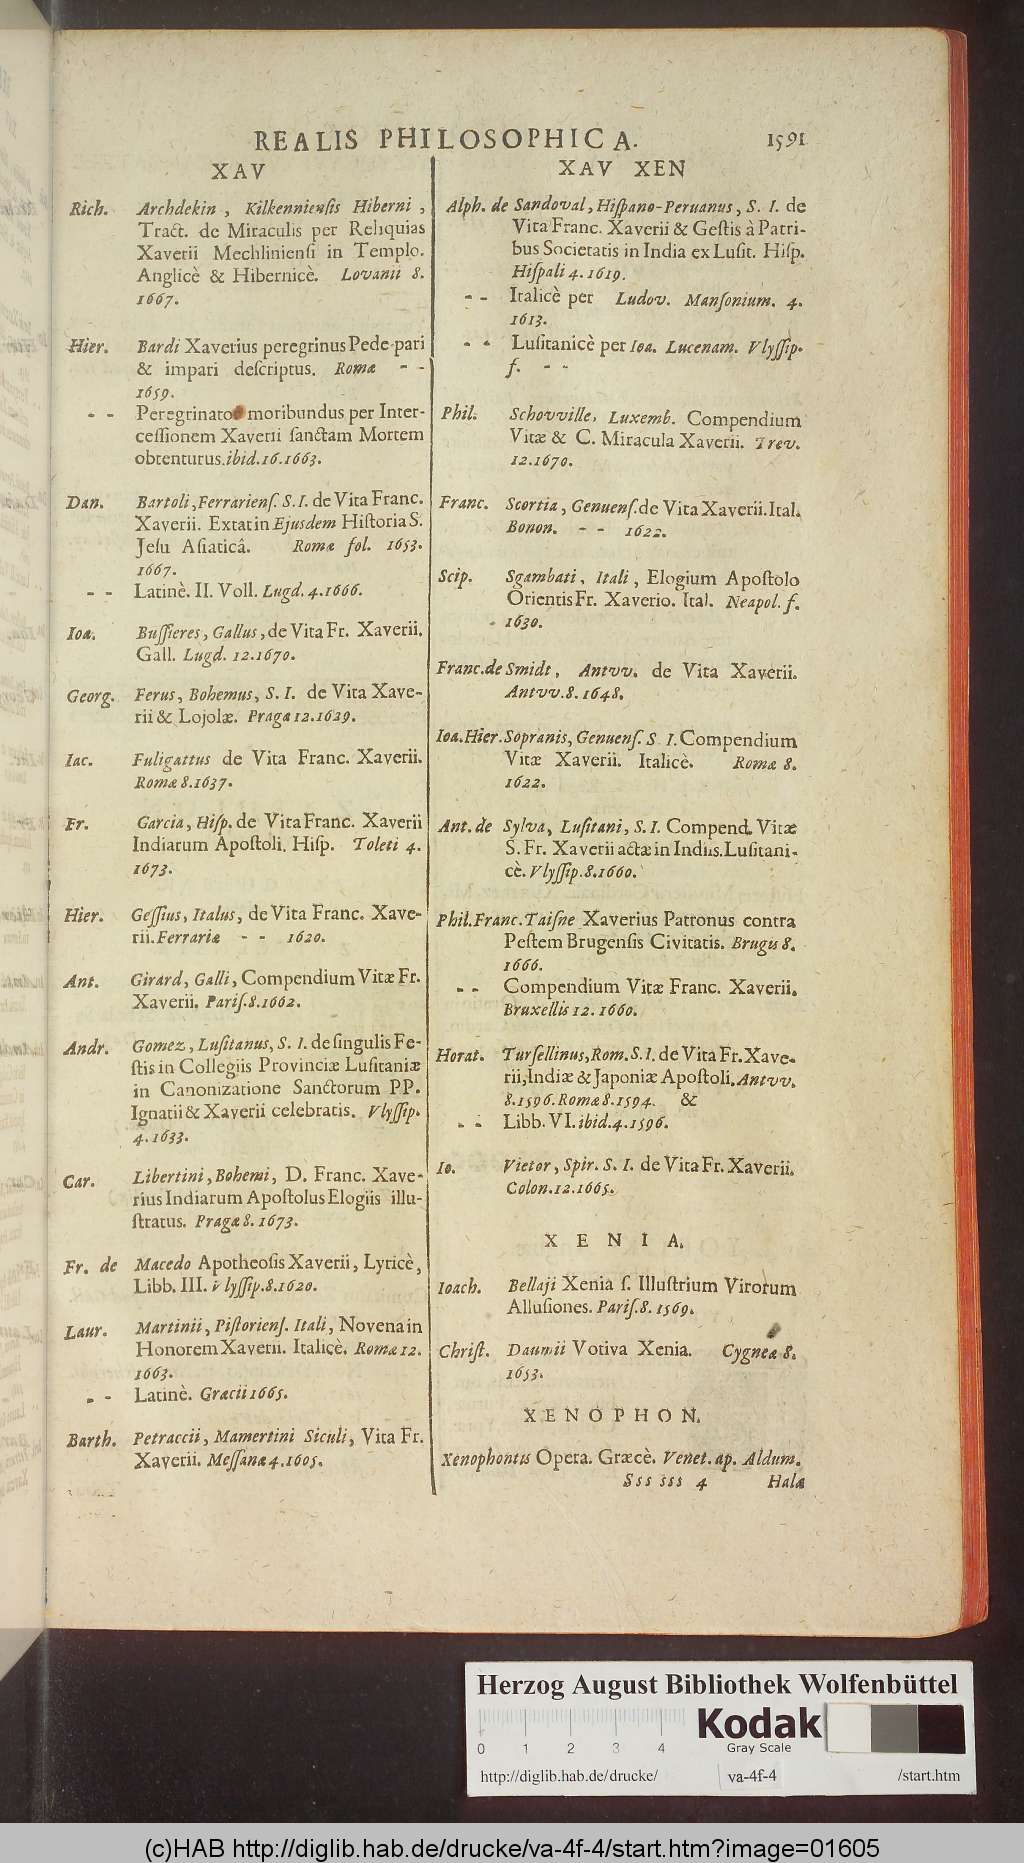 REALIS PHILOSOPHICA. 1591
XAV
Rich. Archdekin, Kilkenniensis Hiberni,
Tract. de Miraculis per Reliquias
Xaverii Mechliniensi in Templo.
Anglicè & Hibernicè. Lovanii 8.
1667.
Hier. Bardi Xaverius peregrinus Pede pari
& impari descriptus. Romæ - -
1659.
- - Peregrinator moribundus per Inter-
cessionem Xaverii sanctam Mortem
obtenturus. ibid. 16. 1663.
Dan. Bartoli, Ferrariens. S. I. de Vita Franc.
Xaverii. Extat in Ejusdem Historia S.
Jesu Asiaticâ. Romæ fol. 1653.
1667.
- - Latinè. II. Voll. Lugd. 4. 1666.
Ioa. Bussieres, Gallus, de Vita Fr. Xaverii.
Gall. Lugd. 12. 1670.
Georg. Ferus, Bohemus, S. I. de Vita Xave-
rii & Lojolæ. Pragæ 12. 1629.
Iac. Fuligattus de Vita Franc. Xaverii.
Romæ 8. 1637.
Fr. Garcia, Hisp. de Vita Franc. Xaverii
Indiarum Apostoli. Hisp. Toleti 4.
1673.
Hier. Gessius, Italus, de Vita Franc. Xave-
rii. Ferrariæ - - 1620.
Ant. Girard, Galli, Compendium Vitæ Fr.
Xaverii. Paris. 8. 1662.
Andr. Gomez, Lusitanus, S. I. de singulis Fe-
stis in Collegiis Provinciæ Lusitaniæ
in Canonizatione Sanctorum PP.
Ignatii & Xaverii celebratis. Vlyssip.
4. 1633.
Car. Libertini, Bohemi, D. Franc. Xave-
rius Indiarum Apostolus Elogiis illu-
stratus. Pragæ 8. 1673.
Fr. de Macedo Apotheosis Xaverii, Lyricè,
Libb. III. Vlyssip. 8. 1620.
Laur. Martinii, Pistoriens. Itali, Novena in
Honorem Xaverii. Italicè. Romæ 12.
1663.
- - Latinè. Gracii 1665.
Barth. Petraccii, Mamertini Siculi, Vita Fr.
Xaverii. Messanæ 4. 1605.
XAV XEN
Alph. de Sandoval, Hispano-Peruanus, S. I. de
Vita Franc. Xaverii & Gestis à Patri-
bus Societatis in India ex Lusit. Hisp.
Hispali 4. 1619.
- - Italicè per Ludov. Mansonium. 4.
1613.
- - Lusitanicè per Ioa. Lucenam. Vlyssip.
f. - -
Phil. Schovville, Luxemb. Compendium
Vitæ & C. Miracula Xaverii. Trev.
12. 1670.
Franc. Scortia, Genuens. de Vita Xaverii. Ital.
Bonon. - - 1622.
Scip. Sgambati, Itali, Elogium Apostolo
Orientis Fr. Xaverio. Ital. Neapol. f.
1630.
Franc. de Smidt, Antvv. de Vita Xaverii.
Antvv. 8. 1648.
Ioa. Hier. Sopranis, Genuens. S. I. Compendium
Vitæ Xaverii. Italicè. Romæ 8.
1622.
Ant. de Sylva, Lusitani, S. I. Compend. Vitæ
S. Fr. Xaverii actæ in Indiis. Lusitani-
cè. Vlyssip. 8. 1660.
Phil. Franc. Taisne Xaverius Patronus contra
Pestem Brugensis Civitatis. Brugis 8.
1666.
- - Compendium Vitæ Franc. Xaverii.
Bruxellis 12. 1660.
Horat. Tursellinus, Rom. S. I. de Vita Fr. Xave-
rii, Indiæ & Japoniæ Apostoli. Antvv.
8. 1596. Romæ 8. 1594. &
- - Libb. VI. ibid. 4. 1596.
Io. Vietor, Spir. S. I. de Vita Fr. Xaverii.
Colon. 12. 1665.
XENIA.
Ioach. Bellaji Xenia s. Illustrium Virorum
Allusiones. Paris. 8. 1569.
Christ. Daumii Votiva Xenia. Cygneæ 8.
1653.
XENOPHON.
Xenophontis Opera. Græcè. Venet. ap. Aldum.
Sss sss 4 Halæ
Herzog August Bibliothek Wolfenbüttel
Kodak
Gray Scale
0 1 2 3 4
http://diglib.hab.de/drucke/ va-4f-4 /start.htm
(c)HAB http://diglib.hab.de/drucke/va-4f-4/start.htm?image=01605